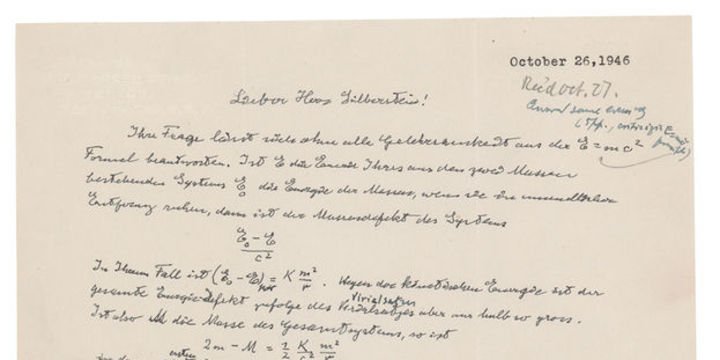 October 26, 1946
Rec'd Oct. 27.
Lieber Herr Silberstein!
Ihre Frage lässt sich ohne alle Gelehrsamkeit aus der E = mc²
Formel beantworten. Ist E die Energie Ihres aus den zwei Massen
bestehenden Systems E₀ die Energie der Massen, wenn sie in unendlicher
Entfernung ruhen, dann ist der Massendefekt des Systems
E₀ − E
c²
In Ihrem Fall ist (E₀ − E) = K m²/r . Wegen der kinetischen Energie ist der
gesamte Energiedefekt zufolge des Virialsatzes aber nur halb so gross.
Ist also M die Masse des Gesamtsystems, so ist
2m − M = ½ K/c² m²/r